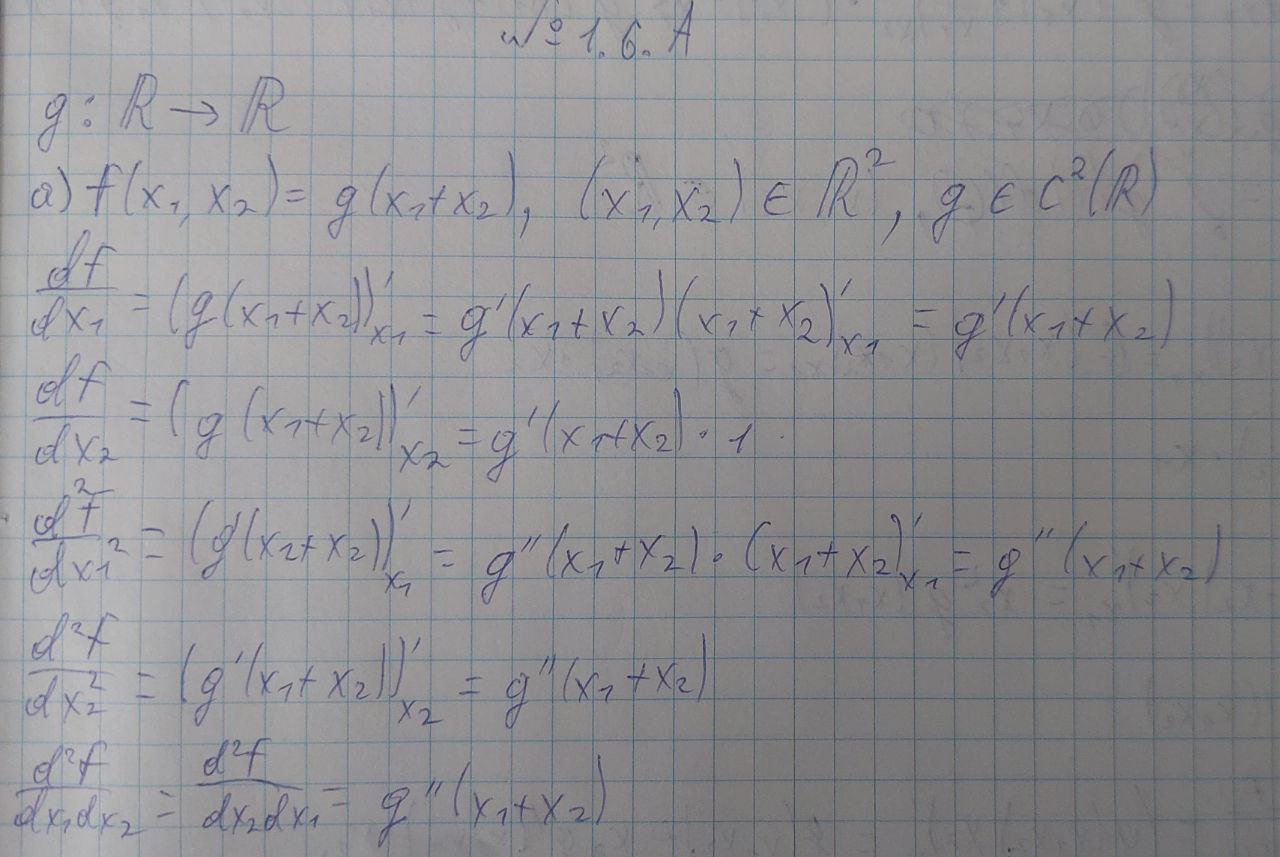 № 1.6.A
g: ℝ → ℝ
а) f(x₁, x₂) = g(x₁+x₂), (x₁,x₂) ∈ ℝ², g ∈ C²(ℝ)
df/dx₁ = (g(x₁+x₂))'ₓ₁ = g'(x₁+x₂)(x₁+x₂)'ₓ₁ = g'(x₁+x₂)
df/dx₂ = (g(x₁+x₂))'ₓ₂ = g'(x₁+x₂)·1
d²f/dx₁² = (g'(x₂+x₂))'ₓ₁ = g''(x₁+x₂)·(x₁+x₂)'ₓ₁ = g''(x₁+x₂)
d²f/dx₂² = (g'(x₁+x₂))'ₓ₂ = g''(x₁+x₂)
d²f/dx₁dx₂ = d²f/dx₂dx₁ = g''(x₁+x₂)